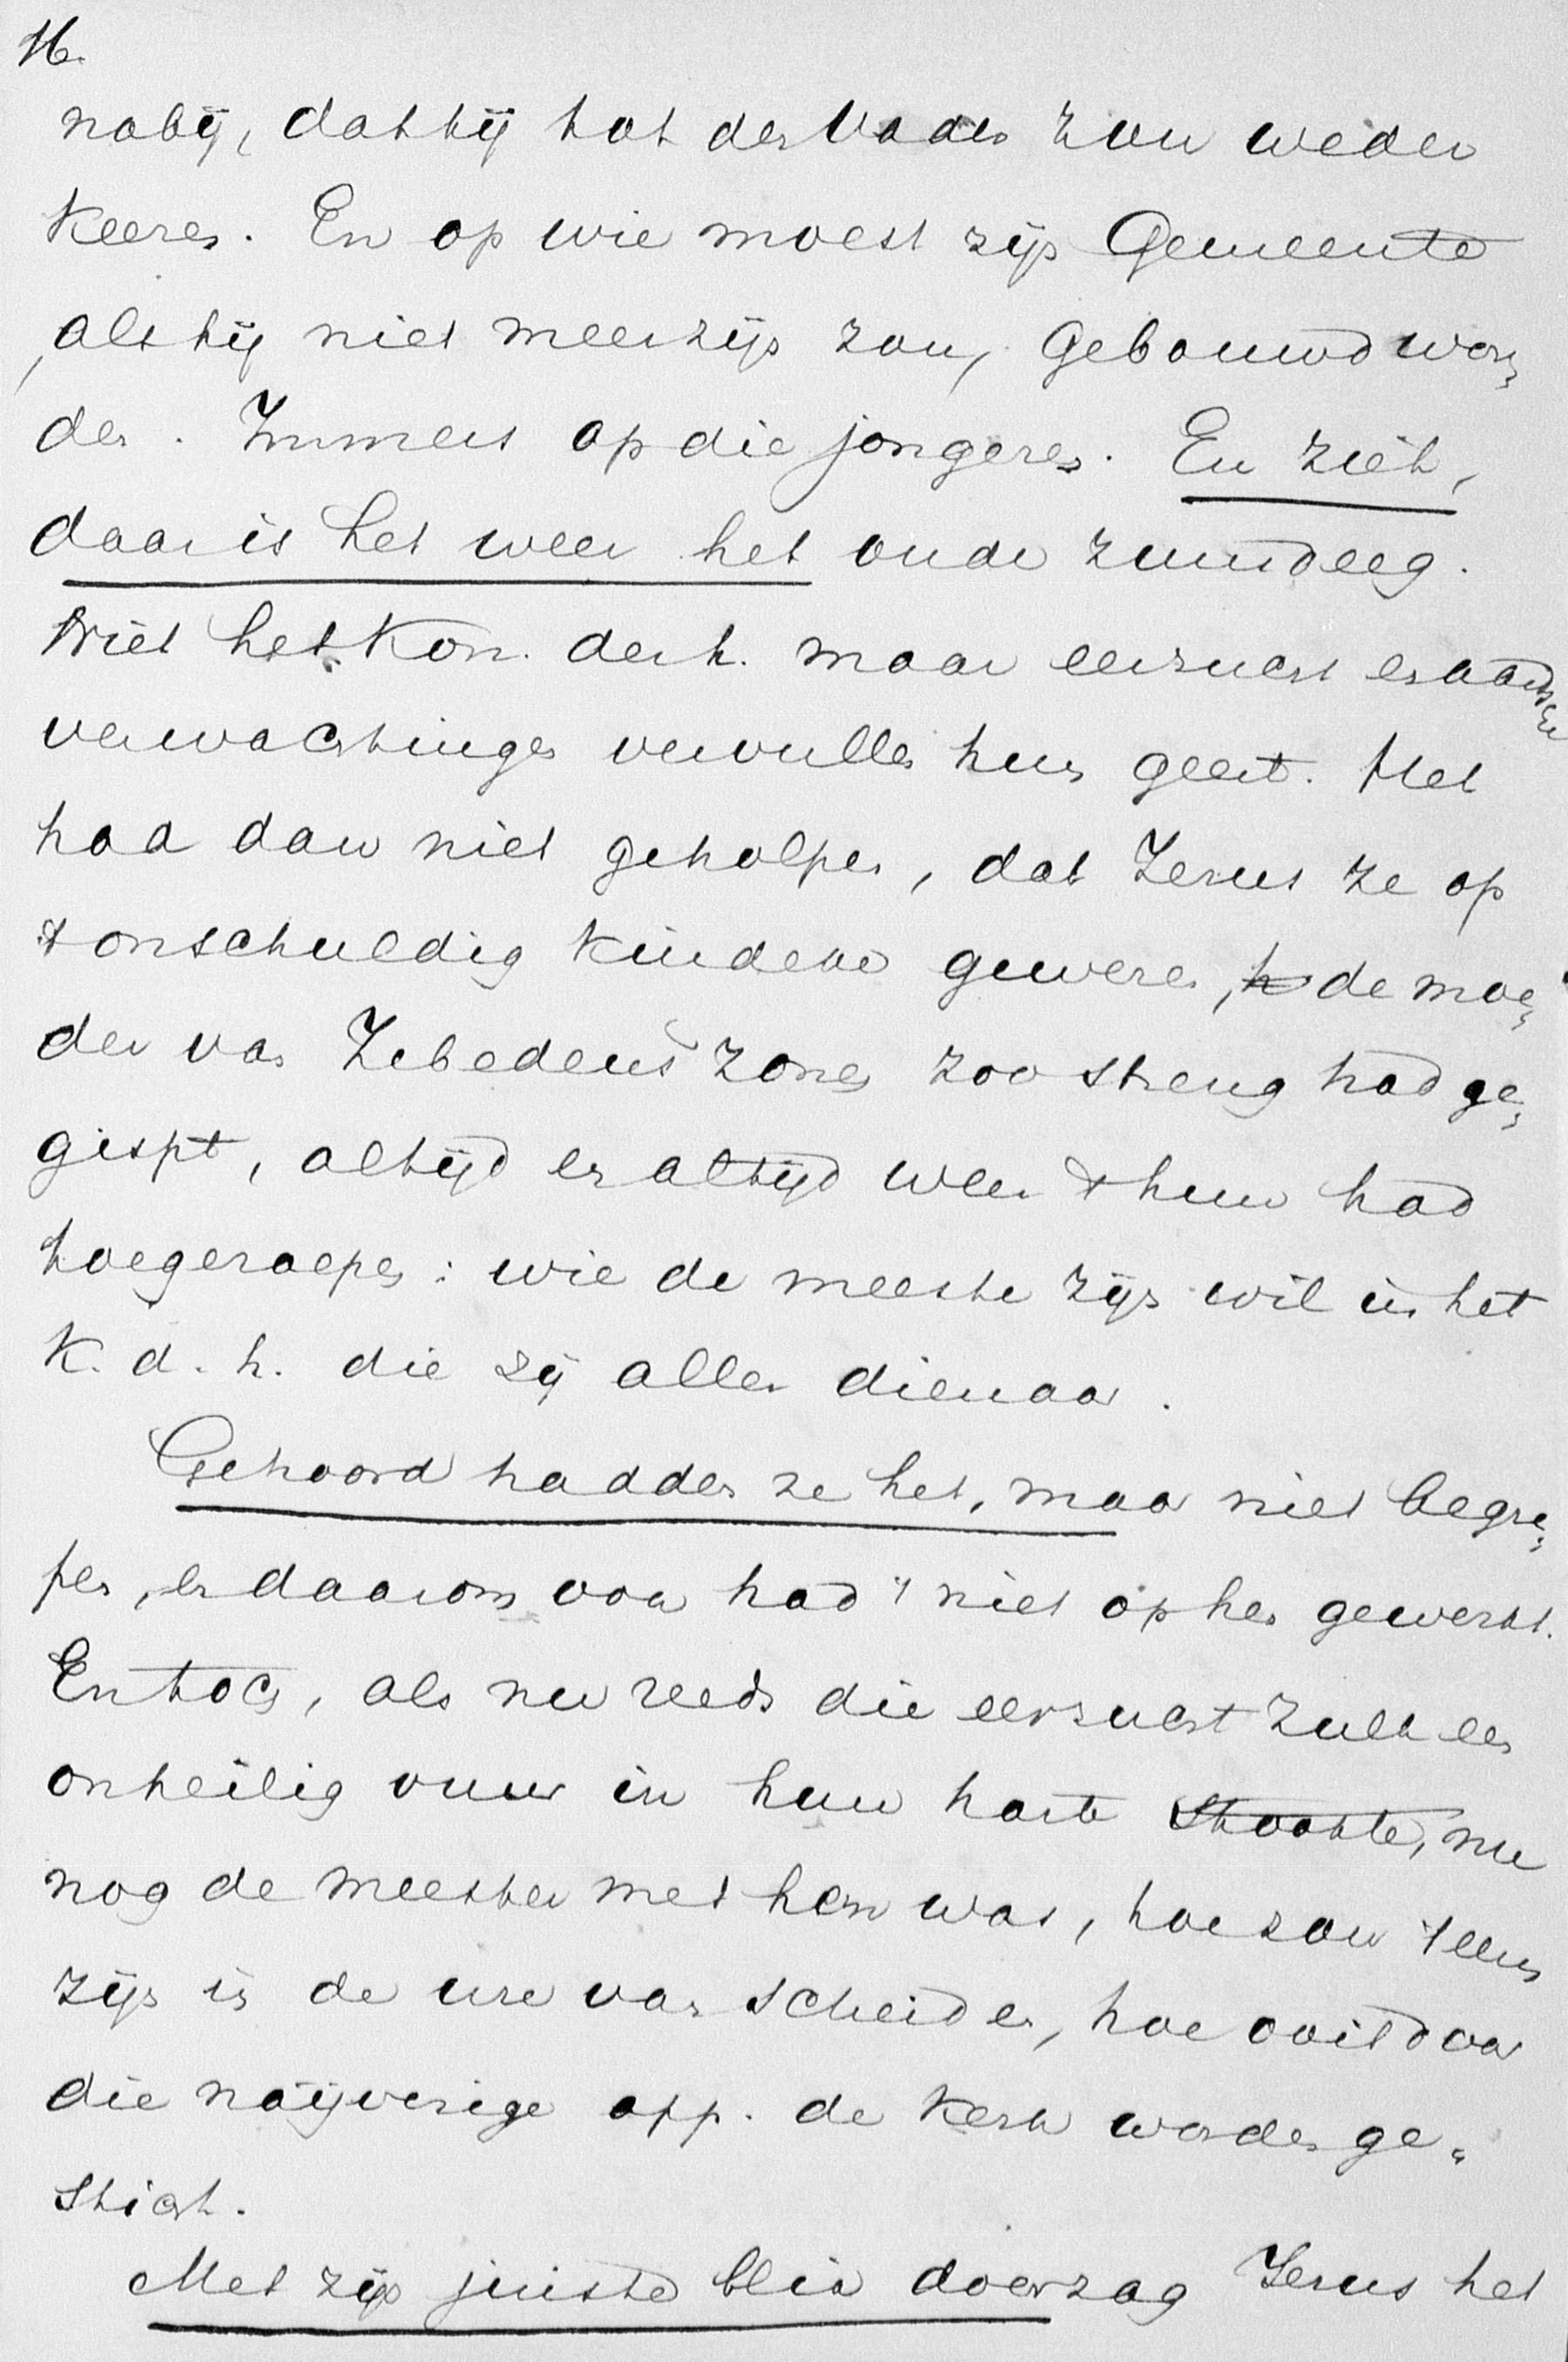 16.
nabij, dat hij tot den Vader zou weder
keeren. En op wie moest zijn Gemeente
, als hij niet meer zijn zou, gebouwd wor„
den. Immers op die jongeren. En zièt,
daar is het weer het oude zuurdeeg.
Niet het Kon. der h. maar eerzucht en aardsche
verwachtingen vervullen hun geest. Het
had dan niet geholpen, dat Jezus ze op
't onschuldig kinderen gewezen, de moe„
der van Zebedeüs zonen zoo streng had ge„
gispt, altijd en altijd weer 't hun had
toegeroepen: wie de meeste zijn wil in het
K. d. h. die zij aller dienaar.
Gehoord hadden ze het, maar niet begre„
pen, en daarom ook had 't niet op hen gewerkt.
En toch, als nu reeds die eerzucht zulk een
onheilig vuur in hun harte stookte, nu
nog de meester met hen was, hoe zou 't eens
zijn in de ure van scheiden, hoe ooit door
die naijverige app. de kerk worden ge„
sticht.
Met zijn juiste blik doorzag Jezus het